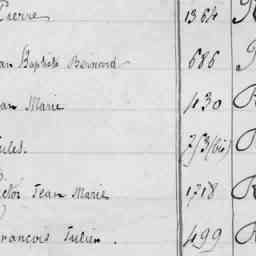 Pierre 1364 R
an Baptiste Bernard 686
ean Marie 430 R
ules. 753 (bis) R
ictor Jean Marie 1718 R
rançois Julien. 499 R